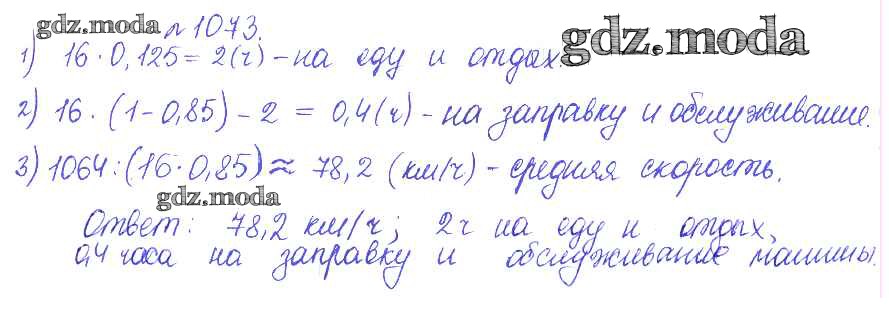 gdz.moda № 1073.
1) 16 · 0,125 = 2(ч) - на еду и отдых. gdz.moda
2) 16 · (1 - 0,85) - 2 = 0,4(ч) - на заправку и обслуживание.
3) 1064 : (16 · 0,85) ≈ 78,2 (км/ч) - средняя скорость.
gdz.moda
Ответ: 78,2 км/ч; 2ч на еду и отдых,
0,4 часа на заправку и обслуживание машины.